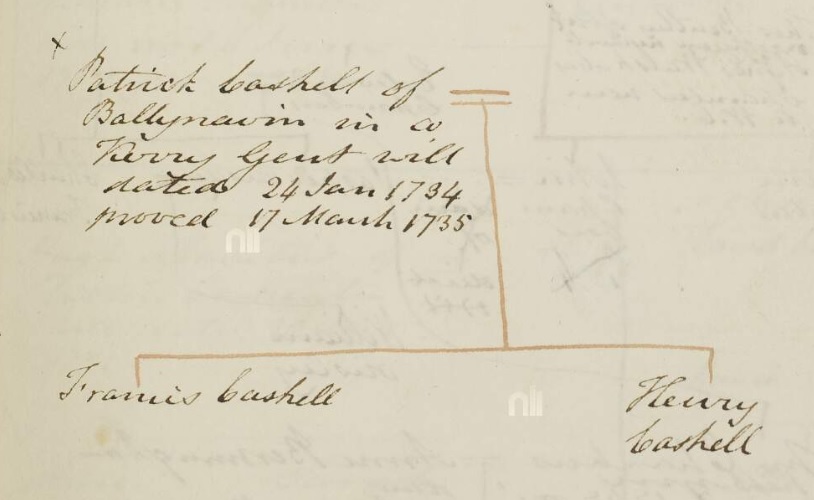 Patrick Cashell of
Ballynavin in Co
Kerry Gent will
dated 24 Jan 1734
proved 17 March 1735
Francis Cashell
Henry
Cashell
nli
nli